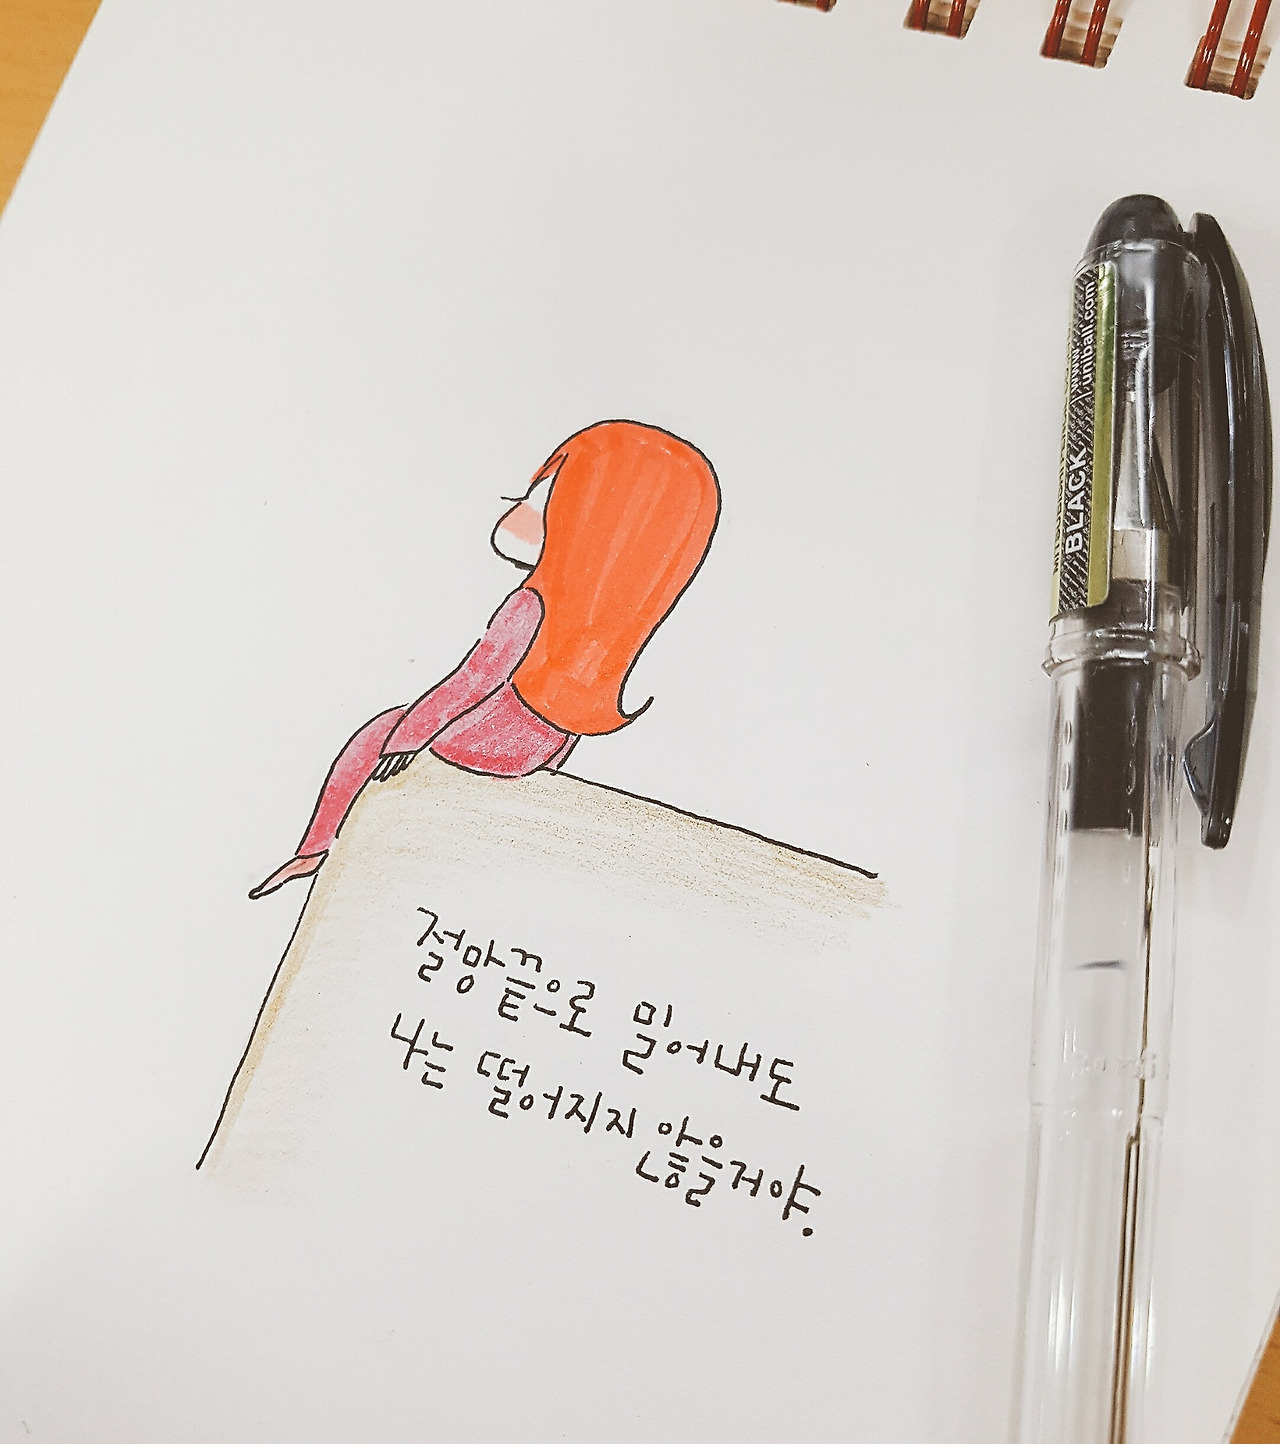 절망끝으로 밀어내도
나는 떨어지지 않을거야.
BLACK
www.
uniball.com